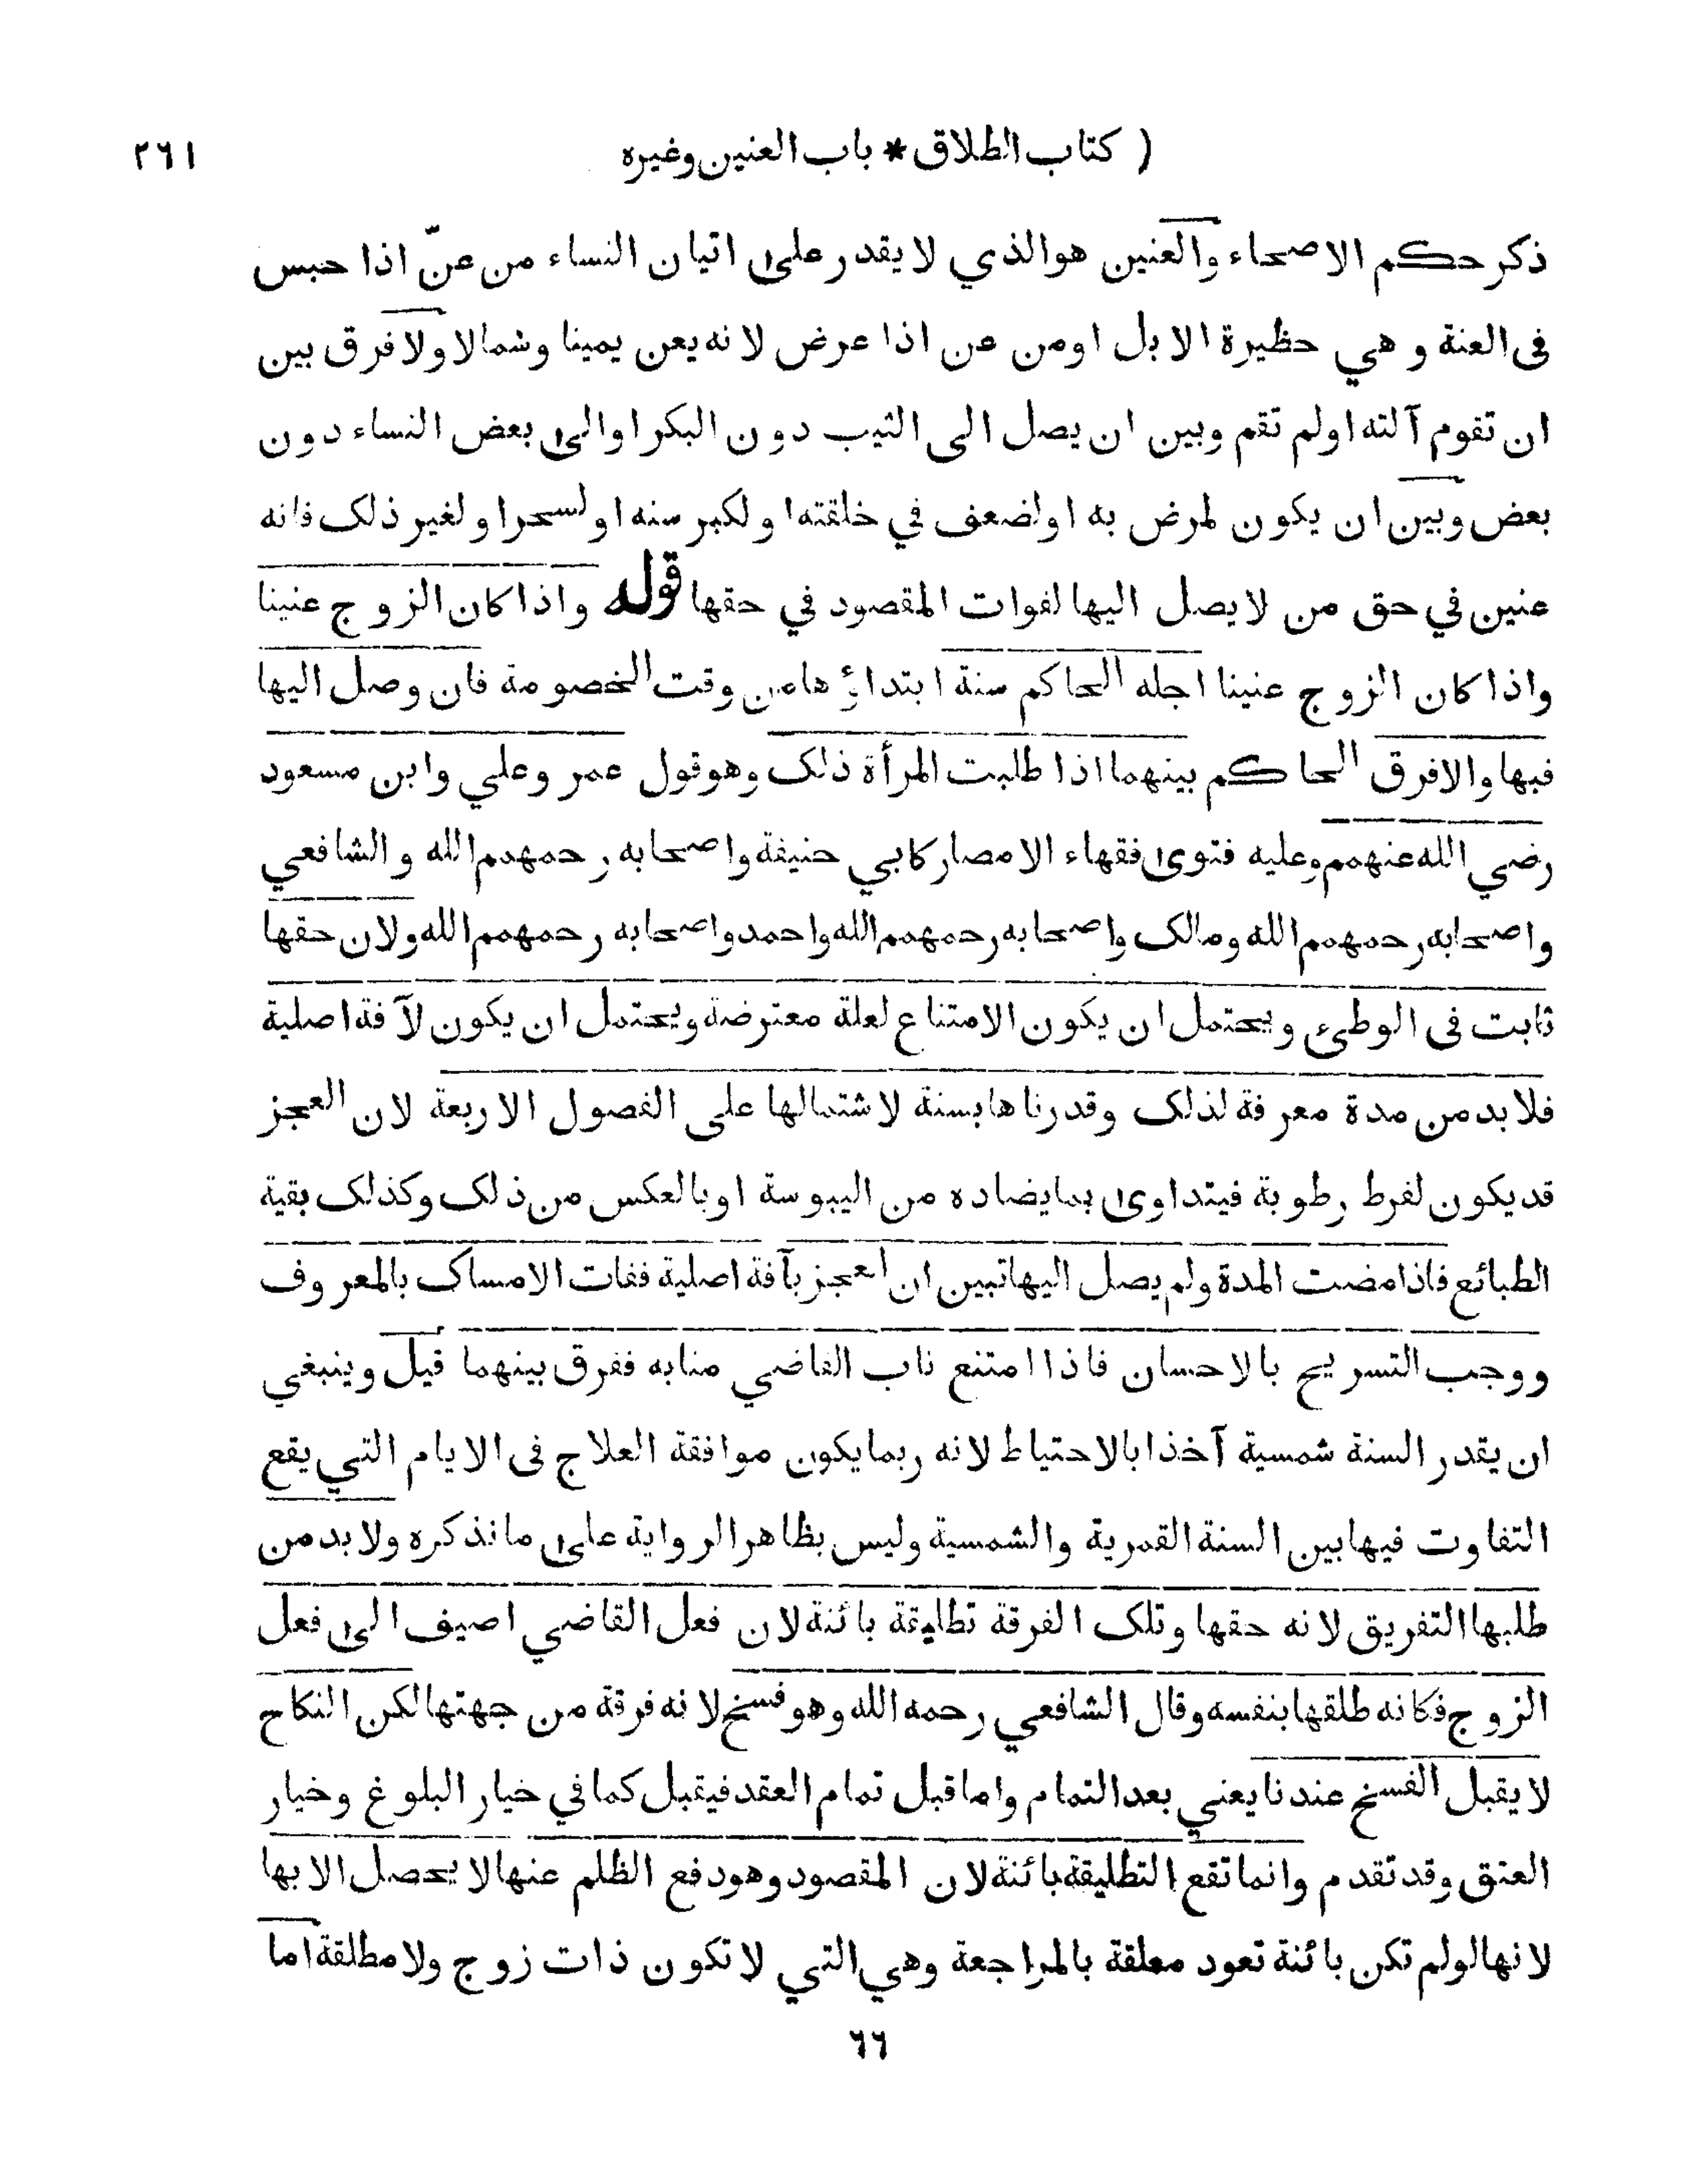 ( كتاب الطلاق * باب العنين وغيره
٢٦١
ذكر حكم الاصحاء والعنين هو الذي لا يقدر على اتيان النساء من عنّ اذا حبس
فى العنة وهي حظيرة الابل او من عن اذا عرض لانه يعن يمينا وشمالا ولا فرق بين
ان تقوم آلته اولم تقم وبين ان يصل الى الثيب دون البكر اوالى بعض النساء دون
بعض وبين ان يكون لمرض به اولضعف في خلقته اولكبر سنه اولسحر اولغير ذلك فانه
عنين في حق من لا يصل اليها لفوات المقصود في حقها قوله واذا كان الزوج عنينا
واذا كان الزوج عنينا اجله الحاكم سنة ابتداؤها من وقت الخصومة فان وصل اليها
فبها والا فرق الحاكم بينهما اذا طلبت المرأة ذلك وهو قول عمر وعلي وابن مسعود
رضي الله عنهم وعليه فتوى فقهاء الامصار كابي حنيفة واصحابه رحمهم الله والشافعي
واصحابه رحمهم الله ومالك واصحابه رحمهم الله واحمد واصحابه رحمهم الله ولان حقها
ثابت فى الوطىء ويحتمل ان يكون الامتناع لعلة معترضة ويحتمل ان يكون لآفة اصلية
فلا بد من مدة معرفة لذلك وقدرناها بسنة لاشتمالها على الفصول الاربعة لان العجز
قد يكون لفرط رطوبة فيتداوى بما يضاده من اليبوسة او بالعكس من ذلك وكذلك بقية
الطبائع فاذا مضت المدة ولم يصل اليها تبين ان العجز بآفة اصلية ففات الامساك بالمعروف
ووجب التسريح بالاحسان فاذا امتنع ناب القاضي منابه ففرق بينهما قيل وينبغي
ان يقدر السنة شمسية آخذا بالاحتياط لانه ربما يكون موافقة العلاج فى الايام التي يقع
التفاوت فيها بين السنة القمرية والشمسية وليس بظاهر الرواية على ما نذكره ولا بد من
طلبها التفريق لانه حقها وتلك الفرقة تطليقة بائنة لان فعل القاضي اصيف الى فعل
الزوج فكانه طلقها بنفسه وقال الشافعي رحمه الله وهو فسخ لانه فرقة من جهتها لكن النكاح
لا يقبل الفسخ عندنا يعني بعد التمام واما قبل تمام العقد فيقبل كما في خيار البلوغ وخيار
العتق وقد تقدم وانما تقع التطليقة بائنة لان المقصود وهو دفع الظلم عنها لا يحصل الا بها
لانها لولم تكن بائنة تعود معلقة بالمراجعة وهي التي لا تكون ذات زوج ولا مطلقة اما
٦٦